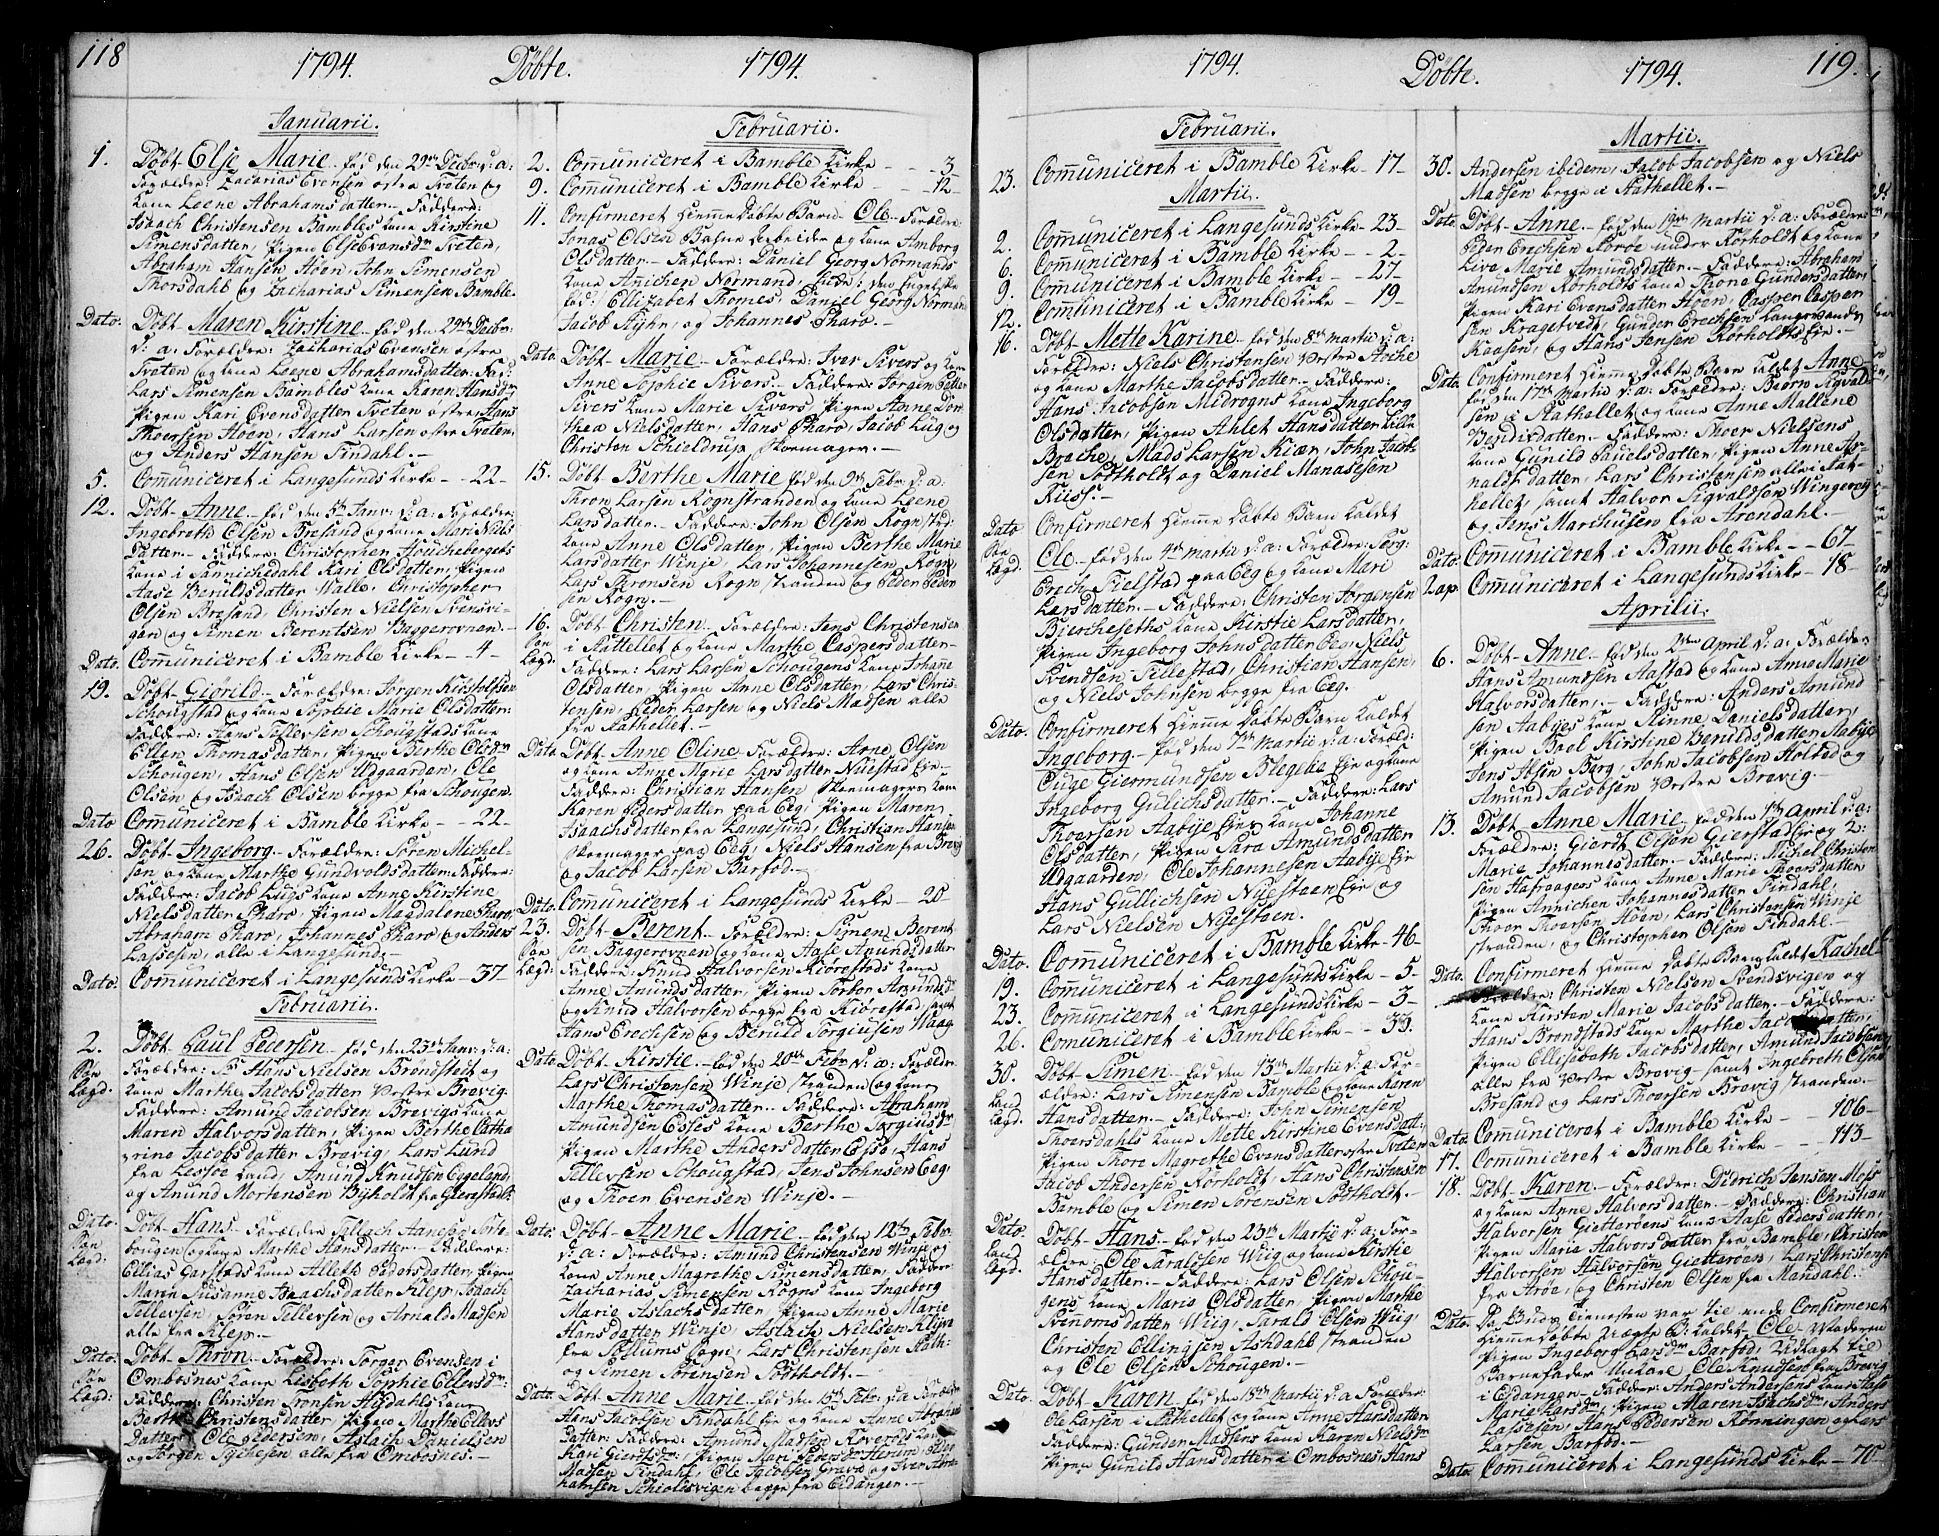 118
1794. Döbte. 1794.
Januarii.
1. Döbt Else Marie fød den 29de Decbr. s: a:
Forældre: Zacharias Evensen østre Tveten og
kone Leene Abrahamsdatter. Faddere:
Isaach Christensen Bambles kone Kirstine
Simensdatter, Pigen Else Evensdr Tveten,
Abraham Hansen Höen, John Simensen
Thorsdahl og Zacharias Simensen Bamble.
Dato. Döbt Maren Kirstine fød den 29de Decbr.
s: a: Forældre: Zacharias Evensen østre
Tveten og kone Leene Abrahamsdatter: Fad:
Lars Simensen Bambles kone Karen Hansdr
Pigen Kari Evensdatter Tveten østre, Hans
Thoersen Höen, Hans Larsen østre Tveten,
og Anders Hansen Findahl.
5. Communiceret i Langesunds Kirke - 22 -
12. Döbt Anne fød den 5te Janv. s: a: Forældre:
Ingebreth Olsen Bresand og kone Mari Niels
Datter. Faddere: Christopher
kone i Sannichedahl Kari Olsdatter, Pigen
Aase Beruldsdatter Walle, Christopher
Olsen Bresand, Christen Nielsen Svensvi-
gen og Simen Berentsen Baggerovnen.
Dato. Communiceret i Bamble Kirke - 4 -
19. Döbt Giörild. Forældre: Jørgen
Schougstad og kone Marie Olsdatter.
Faddere: Hans Tellevsen Schougstads kone
Ellen Thomasdatter, Pigen Berthe Olsdr
Schougen, Hans Olsen Udgaarden, Ole
Olsen og Isaach Olsen begge fra Schougen.
Dato Communiceret i Bamble Kirke - 22 -
26. Döbt Ingeborg. Forældre: Sören Michel-
sen og kone Marthe Gundvoldsdatter: Faddere:
Jacob Lugs kone Anne Kirstine
Nielsdatter Pharo, Pigen Magdalene Pharo,
Abraham Pharo, Johannes Pharo og Anders
Lassesen, alle i Langesund.
Dato. Communiceret i Langesunds Kirke - 37 -
Februarii.
2. Döbt Paul Pedersen fød den 23de Janv. s: a:
Forældre: Hans Nielsen Brondsted og
Lægd: kone Marthe Jacobsdatter Vestre Brevig.
Faddere: Amund Jacobsen Brevigs kone
Maren Halvorsdatter, Pigen Berthe Catha
rine Jacobsdatter Brevig, Lars Lund
fra Lessöe Land, Amund Knudsen Eggeland,
og Amund Mortensen Byholdt fra Gierestad.
Dato. Döbt Hans. Forældre
og kone Marthe Hansdatter. Faddere:
Lægd: Ellias Garstads kone Alleth Pedersdatter, Pigen
Maren Susanne Isaachsdatter Klep, Isaach
Tellevsen, Sören Tellevsen og Arnold Madsen
alle fra Klep.
Dato: Döbt Thron. Forældre: Torger Evensen i
Ombosnes kone Lisbeth Sophie Ellevsdr.
Lægd: Faddere: Christen Tronsen kone
Berthe Christensdatter, Pigen Marthe Ellevs
Datter, Ole Pedersen, Aslach Danielsen
og Jørgen alle fra Ombosnes.
Februarii.
2. Communiceret i Bamble Kirke - 3 -
9. Communiceret i Bamble Kirke - 12 -
11. Confirmeret hiemme Döbte Barn Ole. Forældre
Jonas Olsen Arbeider og kone Amborg
Olsdatter. Faddere: Daniel Georg Normands
kone Anichen Normand,
Elizabet Thomes, Daniel Georg Norman
Jacob og Johannes Pharo.
Dato. Döbt Marie. Forældre: Iver Sivers og kone
Anne Sophie Sivers. Faddere: Jørgen Petter
Sivers kone Marie Sivers, Pigen Anne Dor-
thea Nielsdatter, Hans Pharo, Jacob Lug og
Christen Schieldrup Skomager.
15. Döbt Berthe Marie fød den 9de Febr. s: a:
Thron Larsen Rognstranden og kone Leene
Larsdatter. Faddere: John Olsen Rognstrd:
kone Anne Olsdatter, Pigen Berthe Marie
Larsdatter Winje, Lars Johannesen Rogn,
Lars Sörensen Rognstranden og Peder Peder-
sen Rogn.
16. Döbt Christen. Forældre: Jens Christensen
i Stathellet og kone Marthe Caspersdatter.
Lægd. Faddere: Lars Larsen Schougens kone Johanne
Olsdatter, Pigen Anne Olsdatter, Lars Chris-
tensen, Peder Larsen og Niels Madsen alle
fra Stathellet.
Dato Döbt Anne Oline. Forældre: Aone Olsen
og kone Anne Marie Larsdatter Nustad Eje.
Faddere: Christian Hansen Skomagers kone
Karen Pedersdatter paa Eeg, Pigen Maren
Isaachsdatter fra Langesund, Christian Hansen
Skomager paa Eeg, Niels Hansen fra Brevig
og Jacob Larsen Barfod.
Dato. Communiceret i Langesunds Kirke - 20 -
23. Döbt Berent. Forældre: Simen Berent
sen Baggerovnen og kone Aase Amundsdatter.
Lægd. Faddere: Knud Halvorsen Kiörestads kone
Anne Amundsdatter, Pigen Torbor Amundsdr
og Knud Halvorsen begge fra Kiörestad, samt
Hans Erechsen og Beruld Torgiusen Waag.
Dato. Döbt Kirstie fød den 20de Febr. s: a: Forældre
Lars Christensen Winje Stranden og kone
Marthe Thomasdatter. Faddere: Abraham
Amundsen Esses kone Berthe Torgiusdr
Pigen Marthe Andersdatter Esse, Hans
Tellevsen Schougstad, Jens Johnsen Eeg,
og Thoer Evensen Winje.
Dato. Döbt Anne Marie fød den 12de Febr.
s: a: Forældre: Amund Christensen Winje og
kone Anne Magrethe Simensdatter, Faddere:
Zacharias Simensen Rogns kone Ingeborg
Marie Aslachsdatter, Pigen Anne Marie
Hansdatter Winje, Aslach Nielsen
fra Sollums Sogn, Lars Christensen
og Simen Sörensen Postholdt.
Dato: Döbt Anne Marie fød den 15de Feb. s: a Forældre
Hans Jacobsen Findahl Eje og kone Anne Abrahams
Datter. Faddere: Amund Madsen kone
Kari Giertsdr, Pigen Mari Pedersdr
Madsen Findahl, Ole Jacobsen og Iver Abra-
hamsen Schieldsvigen begge fra Eidanger.
1794. Döbte. 1794.
119.
Februarii.
23. Communiceret i Bamble Kirke - 17 -
Martii.
2. Communiceret i Langesunds Kirke - 23 -
6. Communiceret i Bamble Kirke - 2 -
9. Communiceret i Bamble Kirke - 27 -
12. Communiceret i Bamble Kirke - 19 -
16. Döbt Mette Karine fød den 8de Martii s: a:
Forældre: Niels Christensen Vestre
og kone Marthe Jacobsdatter. Faddere:
Hans Jacobsen Midrogns kone Ingeborg
Olsdatter, Pigen Ahlet Hansdatter Lille
Brache, Mads Larsen Kiær, John Jacob-
sen Postholdt og Daniel Manasesen
Russ.
Dato Confirmeret hiemme Döbte Barn kaldet
Ole, fød den 4de Martii s: a: Forældre:
Lægd. Erech Fielstad paa Eeg og kone Mari
Larsdatter. Faddere: Christen Jørgensen
Bierchesethes kone Kirstie Larsdatter,
Pigen Ingeborg Johnsdatter Eeg, Niels
Svendsen Tillestad, Christian Hansen,
og Niels Johnsen begge fra Eeg.
Dato. Confirmeret hiemme Döbte Barn kaldet
Ingeborg fød den 7de Martii s: a: Foræld:
Giermundsen Eje og kone
Ingeborg Gulichsdatter. Faddere: Lars
Thoersen Aabye Ejes kone Johanne
Olsdatter, Pigen Sara Amundsdatter
Udgaarden, Ole Johannesen Aabye Eje
Hans Gullichsen Nystaen Eje og
Lars Nielsen Nystaen.
Dato. Communiceret i Bamble Kirke - 46 -
19. Communiceret i Langesunds Kirke - 5 -
23. Communiceret i Langesunds Kirke - 3 -
26. Communiceret i Bamble Kirke - 33.
30. Döbt Simen fød den 13de Martii s: a: For-
ældre: Lars Simensen Bamble og kone Karen
Lægd. Hansdatter. Faddere: John Simensen
Thoersdahls kone Mette Kirstine Evensdatt:
Pigen Thore Magrethe Evensdatter østre Tveten
Jacob Andersen Rörholdt, Hans Christensen
Bamble og Simen Sörensen Postholdt.
Dato. Döbt Hans fød den 23de Martii s: a: For-
ældre: Ole Taralsen Wiig og kone Kirstie
Lægd. Hansdatter. Faddere: Lars Olsen Schou-
gens kone Maria Olsdatter, Pigen Marthe
Svinomsdatter Wiig, Tarald Olsen Wiig,
Christen Ellingsen Ashdahl Stranden
og Ole Olsen Schougen.
Dato. Döbt Karen fød den 18de Martii s: a Forældre:
Ole Larsen i Stathellet og kone Anne Hansdatter
Faddere: Gunder Madsens kone Karen Nielsdr
Pigen Gunild Hansdatter i Ombosnes, Hans
Martii.
30. Andersen ibidem, Jacob Jacobsen og Niels
Madsen begge i Stathellet.
Dato Döbt Anne fød den 19de Martii s: a: Forældre
Peder Erechsen Aaröe under Rörholdt og kone
Live Marie Amundsdatter. Faddere: Abraham
Amundsen Rörholdts kone Thone Gundersdatter,
Pigen Kari Evensdatter Höen, Casper Casper
sen Kragetvedt, Gunder Erechsen Langesunds
Kaasen, og Hans Jensen Rörholdts Eje.
Dato. Confirmeret hiemme Döbte Barn kaldet Anne
fød den 17de Martii s: a: Forældre: Beörn Sigvald
sen i Stathellet og kone Anne Mallene
Bendixdatter. Faddere: Thoer Nielsens
kone Gunild Pauelsdatter, Pigen Anne Ar-
noldsdatter, Lars Christensen alle i Stat-
hellet, samt Halvor Sigvaldsen
og Jens Marchusen fra Arendahl.
Dato. Communiceret i Bamble Kirke - 67 -
Communiceret i Langesunds Kirke - 18 -
Aprilii.
6. Döbt Anne fød den 2den April s: a: Forældre
Hans Amundsen Aastad og kone Anne Marie
Halvorsdatter. Faddere: Anders Amund
sen Aabyes kone Kinne Danielsdatter,
Pigen Boel Kirstine Berulsdatter Aabye
Jens Ibsen Berg, John Jacobsen Holtet og
Amund Jacobsen Vestre Brevig.
13. Döbt Anne Marie fød den 1de April s: a:
Forældre: Giert Olsen Gierstad og k:
Marie Johannesdatter. Faddere: Michel Christen
sen Hafsagers kone Anne Marie Thoersdatter
Pigen Annichen Johannesdatter Findahl,
Thoer Thoersen Höen, Lars Christensen Winje
Stranden, og Christopher Olsen Findahl.
Dato. Confirmeret hiemme Döbte Barn kaldet Rachel
Forældre: Christen Nielsen Svendsvigen og
kone Kirsten Marie Jacobsdatter. Faddere:
Hans Brondstads kone Marthe Jacobsdatter,
Pigen Ellisebeth Jacobsdatter, Amund Jacobsen
alle fra Vestre Brevig samt Ingebreth Olsen
Bresand og Lars Thoersen Brevig Stranden.
Dato. Communiceret i Bamble Kirke - 106 -
17. Communiceret i Bamble Kirke - 113 -
18. Döbt Karen. Forældre: Didrich Jensen Moss
og kone Anne Halvorsdatter. Faddere: Christian
Halvorsen Gietteröens kone Aase Pedersdatter,
Pigen Maria Halvorsdatter fra Bamble, Christen
Halvorsen Halvorsen Gietteröen, Lars Christensen
fra Aröe, og Christen Olsen fra Mandahl.
Dato. Da Guds Tienesten var til ende Confirmeret
Hiemmedöbte Uægte B: kaldet Ole. Moderen
Pigen Ingeborg Larsdr Barfod, Udlagt til
Barnefader Unkarl Ole Knudsen fra Brevig
i Eidanger. Fadder: Anders Andersens kone Aase
Marie Larsdr, Pigen Maren Isachsdr, Anders
Lassesen, Hans Pedersen Rönningen og Lars
Larsen Barfod.
Dato Communiceret i Langesunds Kirke - 70 -